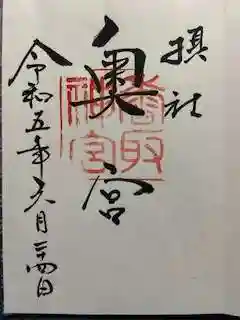 摂社
奥宮
香取神宮
令和五年六月二四日